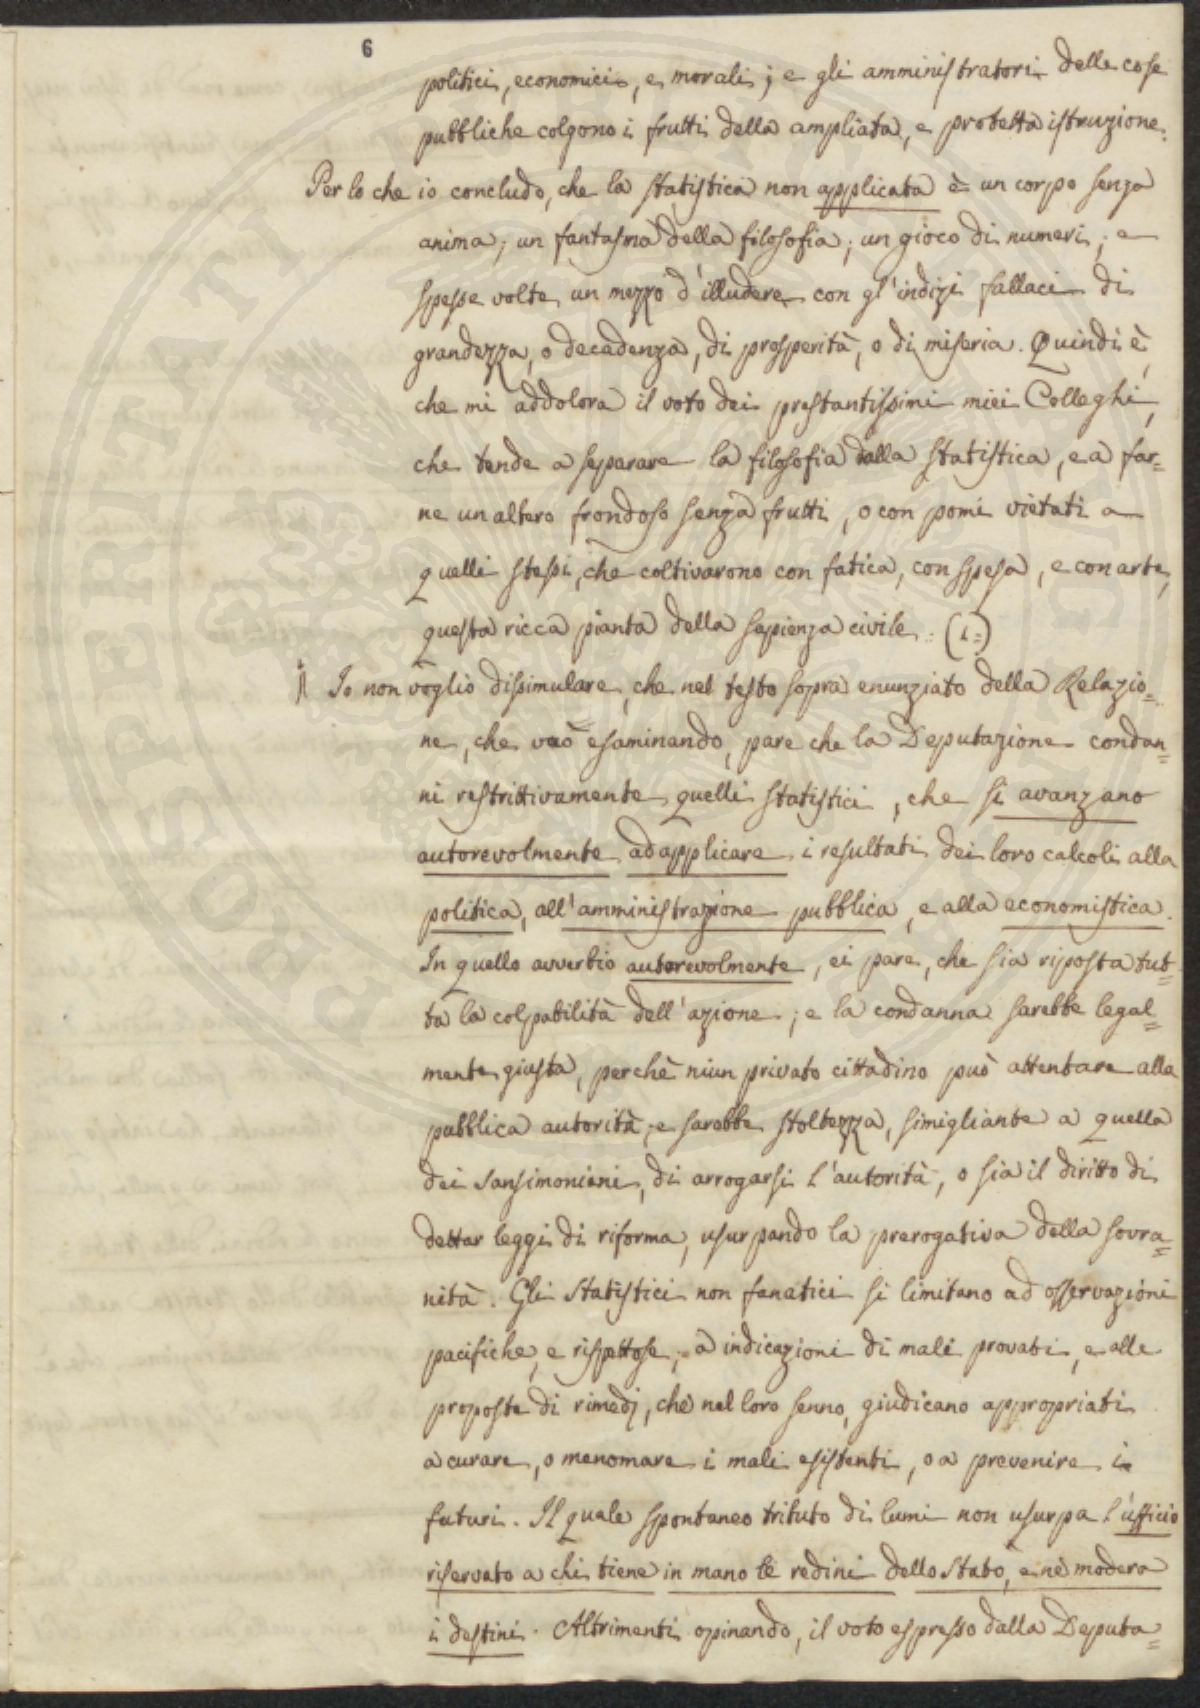 6
politici, economici, e morali; e gli amministratori delle cose
pubbliche colgono i frutti della ampliata, e protetta istruzione.
Per lo che io concludo, che la statistica non applicata è un corpo senza
anima; un fantasma della filosofia; un gioco di numeri; e
spesse volte un mezzo d'illudere con gl'indizi fallaci di
grandezza, o decadenza, di prosperità, o di miseria. Quindi è,
che mi addolora il voto dei prestantissimi miei Colleghi,
che tende a separare la filosofia dalla statistica, e a far=
ne un albero frondoso senza frutti, o con pomi vietati a
quelli stessi, che coltivarono con fatica, con spesa, e con arte,
questa ricca pianta della sapienza civile. (1=)
Io non voglio dissimulare, che nel testo sopra enunziato della Relazio=
ne, che vuò esaminando, pare che la Deputazione condan=
ni restrittivamente quelli statistici, che si avanzano
autorevolmente ad applicare i resultati dei loro calcoli alla
politica, all'amministrazione pubblica, e alla economistica.
In quello avverbio autorevolmente, ei pare, che sia riposta tut=
ta la colpabilità dell'azione; e la condanna sarebbe legal=
mente giusta, perchè niun privato cittadino può attentare alla
pubblica autorità, e sarebbe stoltezza, simigliante a quella
dei Sansimoniani, di arrogarsi l'autorità, o sia il diritto di
dettar leggi di riforma, usurpando la prerogativa della sovra=
nità. Gli statistici non fanatici si limitano ad osservazioni
pacifiche, e rispettose; a indicazioni di mali provati, e alle
proposte di rimedj, che nel loro senno, giudicano appropriati
a curare, o menomare i mali esistenti, o a prevenire i
futuri. Il quale spontaneo tributo di lumi non usurpa l'ufficio
riservato a chi tiene in mano le redini dello Stato, e ne modera
i destini. Altrimenti opinando, il voto espresso dalla Deputa=
PROSPERITATI